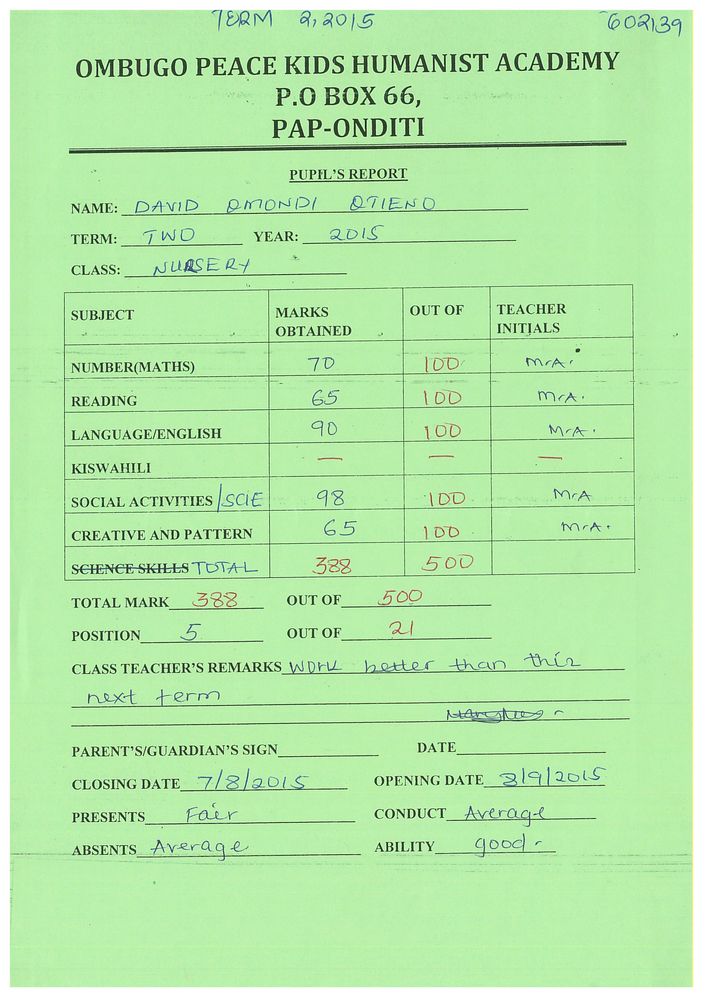 TERM 2, 2015 602139
OMBUGO PEACE KIDS HUMANIST ACADEMY
P.O BOX 66,
PAP-ONDITI
PUPIL'S REPORT
NAME: DAVID OMONDI OTIENO
TERM: TWO YEAR: 2015
CLASS: NURSERY
SUBJECT MARKS OBTAINED OUT OF TEACHER INITIALS
NUMBER(MATHS) 70 100 M.A.
READING 65 100 M.A.
LANGUAGE/ENGLISH 90 100 M.A.
KISWAHILI — — —
SOCIAL ACTIVITIES /SCIE 98 100 M.A
CREATIVE AND PATTERN 65 100 M.A.
SCIENCE SKILLS TOTAL 388 500
TOTAL MARK 388 OUT OF 500
POSITION 5 OUT OF 21
CLASS TEACHER'S REMARKS Work better than this
next term
PARENT'S/GUARDIAN'S SIGN DATE
CLOSING DATE 7/8/2015 OPENING DATE 3/9/2015
PRESENTS Fair CONDUCT Average
ABSENTS Average ABILITY good.